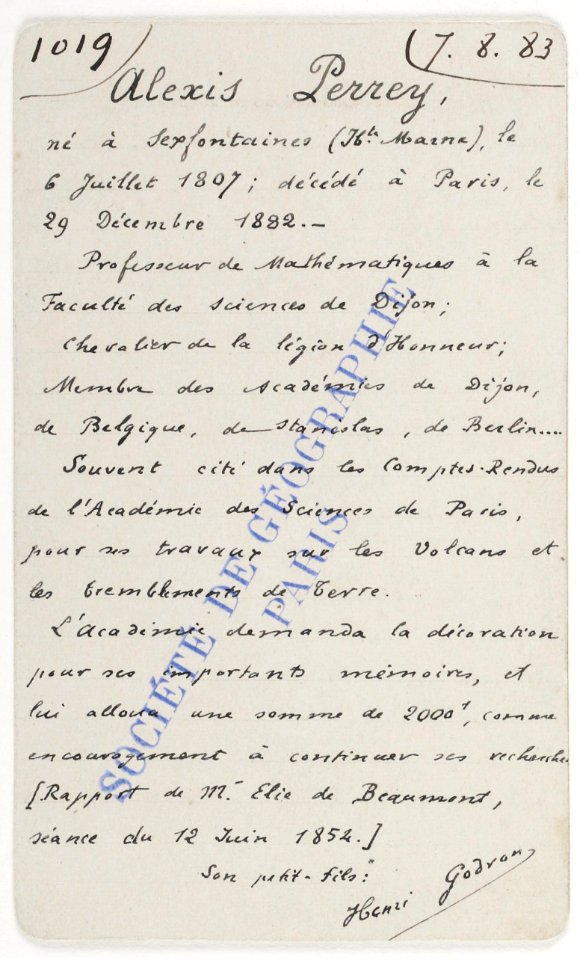 1019
7. 8. 83
Alexis Perrey,
né à Sexfontaines (Hte Marne), le
6 Juillet 1807 ; décédé à Paris, le
29 Décembre 1882.—
Professeur de Mathématiques à la
Faculté des Sciences de Dijon ;
Chevalier de la légion d'Honneur ;
Membre des Académies de Dijon,
de Belgique, de Stanislas, de Berlin....
Souvent cité dans les Comptes-Rendus
de l'Académie des Sciences de Paris,
pour ses travaux sur les Volcans et
les tremblements de Terre.
L'Académie demanda la décoration
pour ses importants mémoires, et
lui alloua une somme de 2000f, comme
encouragement à continuer ses recherches
[Rapport de Mr Elie de Beaumont,
séance du 12 Juin 1852.]
Son petit-fils :
Henri Godron
SOCIÉTÉ DE GÉOGRAPHIE
PARIS